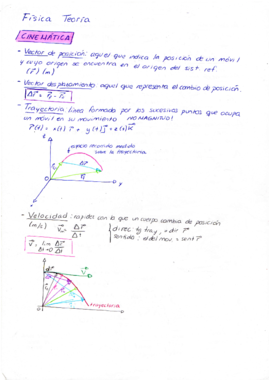 Física Teoría
CINEMÁTICA
- Vector de posición: aquel que indica la posición de un móvil
y cuyo origen se encuentra en el origen del sist. ref.
(r⃗) (m)
- Vector desplazamiento aquel que representa el cambio de posición.
Δr⃗ = r⃗₂ - r⃗₁
- Trayectoria línea formada por los sucesivos puntos que ocupa
un móvil en su movimiento NO MAGNITUD!
r⃗(t) = x(t) i⃗ + y(t) j⃗ + z(t) k⃗
espacio recorrido medido
sobre la trayectoria
- Velocidad: rapidez con la que un cuerpo cambia de posición
(m/s) v⃗ₘ = Δr⃗ / Δt
v⃗ = lim Δt→0 Δr⃗ / Δt
trayectoria